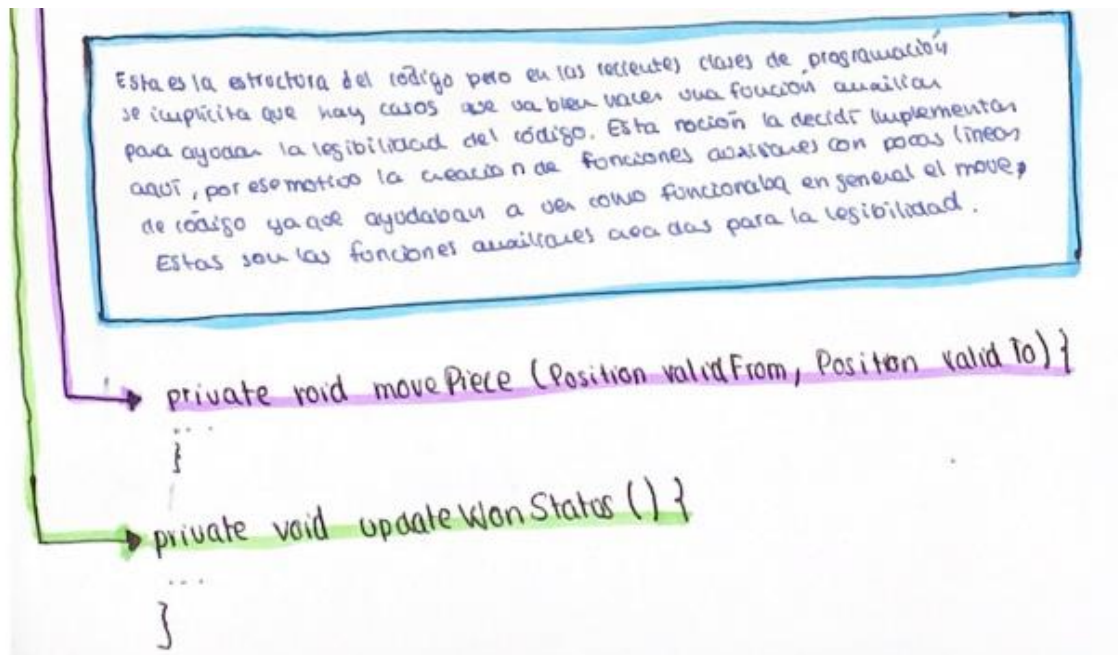 Esta es la estructura del código pero en las recientes clases de programación
se implicita que hay casos que va bien hacer una función auxiliar
para ayudar la legibilidad del código. Esta noción la decidí implementar
aquí, por ese motivo la creación de funciones auxiliares con pocas líneas
de código ya que ayudaban a ver como funcionaba en general el move,
Estas son las funciones auxiliares creadas para la legibilidad.
private void movePiece (Position validFrom, Position validTo) {
...
}
private void updateWonStatus () {
...
}